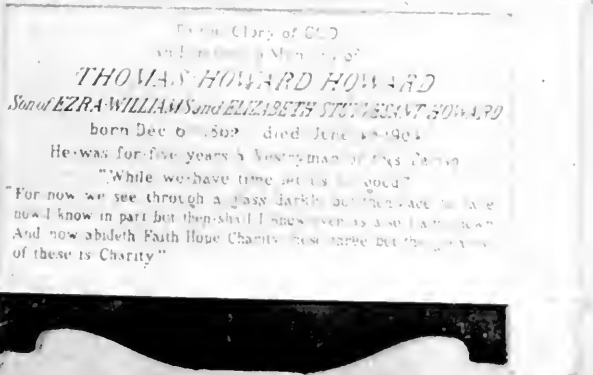 Glory of GOD
of
THOMAS HOWARD HOWARD
Son of EZRA WILLIAMS and ELIZABETH STUYVESANT HOWARD
born Dec 6 died June
He was for five years a Vestryman of this Parish
"While we have time let us do good"
"For now we see through a glass darkly but then face to face
now I know in part but then shall I know even as also I am known
And now abideth Faith Hope Charity these three but the
of these is Charity"